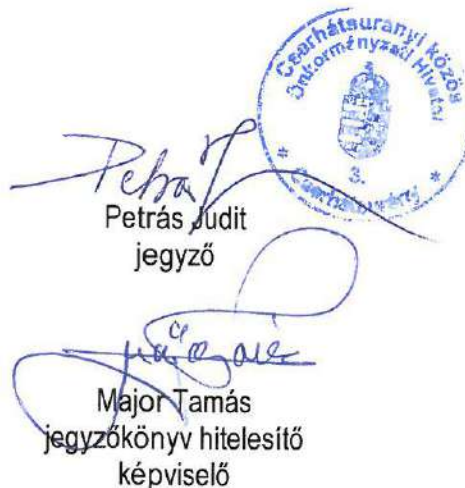 Cserhátsurányi közös
Önkormányzati Hivatal
* 3. *
Cserhátsurány
Petrás Judit
jegyző
Major Tamás
jegyzőkönyv hitelesítő
képviselő